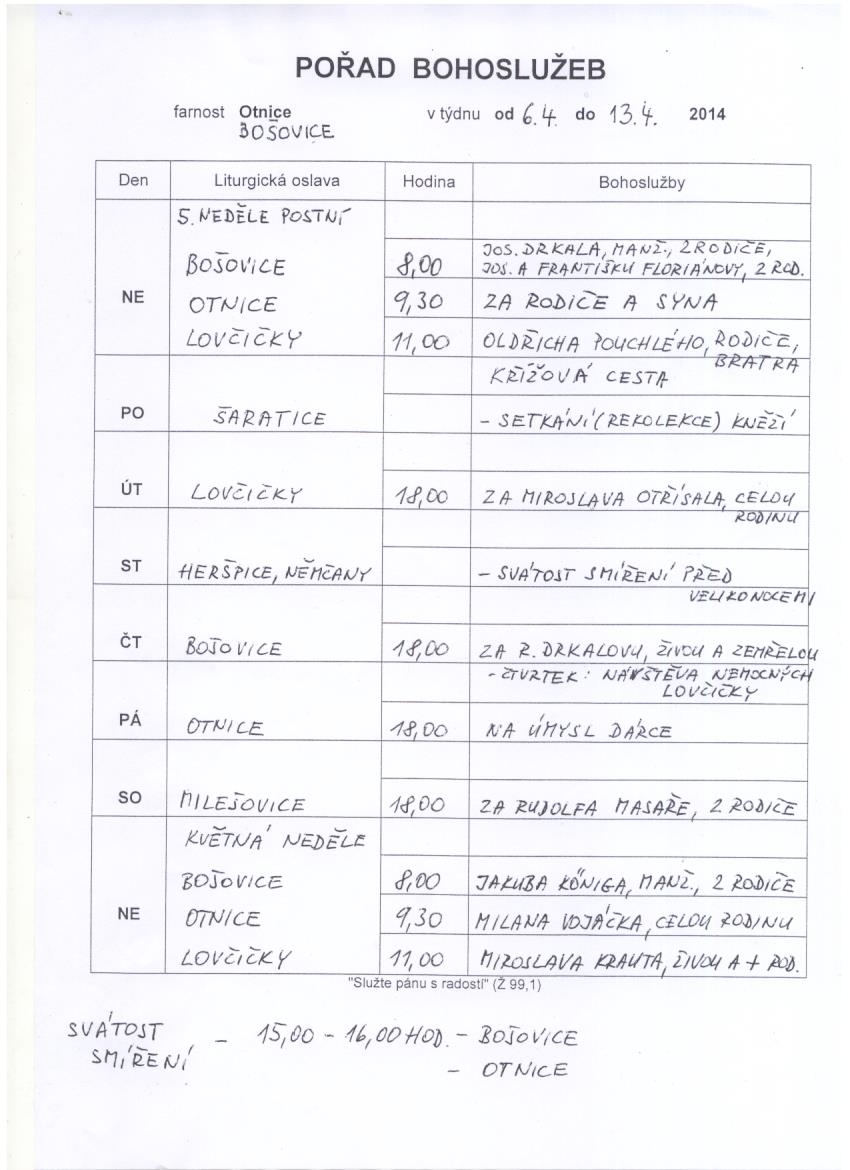 POŘAD BOHOSLUŽEB
farnost Otnice v týdnu od 6.4. do 13.4. 2014
BOŠOVICE
Den Liturgická oslava Hodina Bohoslužby
5. NEDĚLE POSTNÍ
JOS. DRKALA, MANŽ., 2 RODIČE,
BOŠOVICE 8,00 JOS. A FRANTIŠKU FLORIÁNOVY, 2 ROD.
NE OTNICE 9,30 ZA RODIČE A SYNA
LOVČIČKY 11,00 OLDŘICHA POUCHLÉHO, RODIČE,
BRATRA
KŘÍŽOVÁ CESTA
PO ŠARATICE - SETKÁNÍ (REKOLEKCE) KNĚŽÍ
ÚT LOVČIČKY 18,00 ZA MIROSLAVA OTŘÍSALA, CELOU
RODINU
ST HERŠPICE, NĚMČANY - SVÁTOST SMÍŘENÍ PŘED
VELIKONOCEMI
ČT BOŠOVICE 18,00 ZA R. DRKALOVU, ŽIVOU A ZEMŘELOU
- ČTVRTEK: NÁVŠTĚVA NEMOCNÝCH
LOVČIČKY
PÁ OTNICE 18,00 NA ÚMYSL DÁRCE
SO MILEŠOVICE 18,00 ZA RUDOLFA MASAŘE, 2 RODIČE
KVĚTNÁ NEDĚLE
BOŠOVICE 8,00 JAKUBA KÖNIGA, MANŽ., 2 RODIČE
NE OTNICE 9,30 MILANA VOJÁČKA, CELOU RODINU
LOVČIČKY 11,00 MIROSLAVA KRAUTA, ŽIVOU A + ROD.
"Služte pánu s radostí" (Ž 99,1)
SVÁTOST SMÍŘENÍ - 15,00 - 16,00 HOD. - BOŠOVICE
- OTNICE